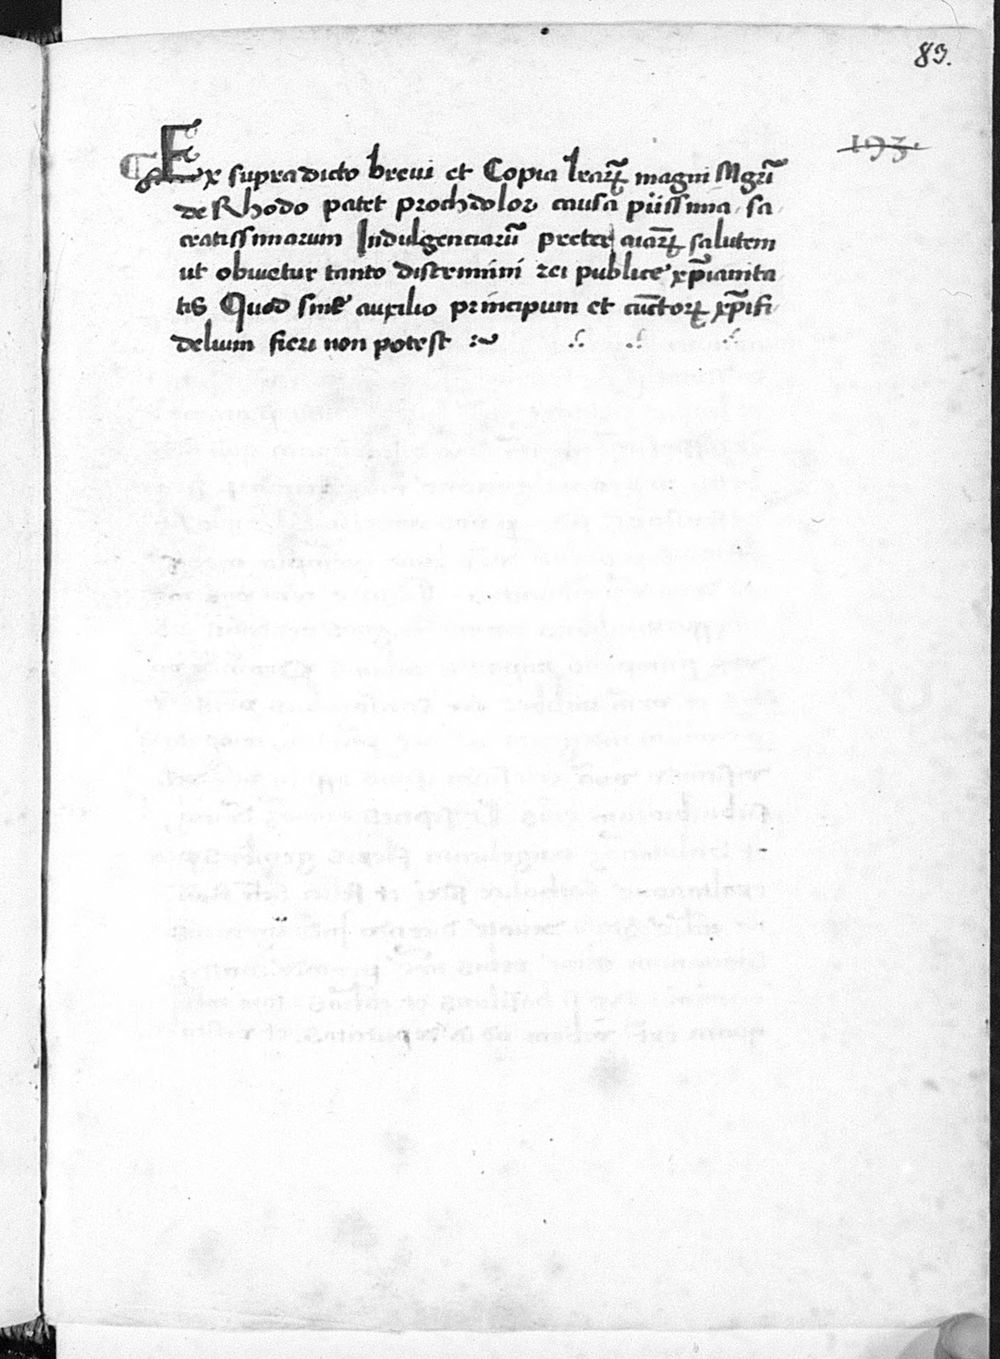 83.
193.
Ex supradicto brevi et Copia lrarꝝ magni Mgrī
de Rhodo patet prochdolor causa piissima sa
cratissimarum Indulgenciarū preter aīarꝝ salutem
ut obvietur tanto discrimini rei publice xp̄ianita
tis Quod sine auxilio principum et cūctorꝝ xp̄ifi
delium fieri non potest